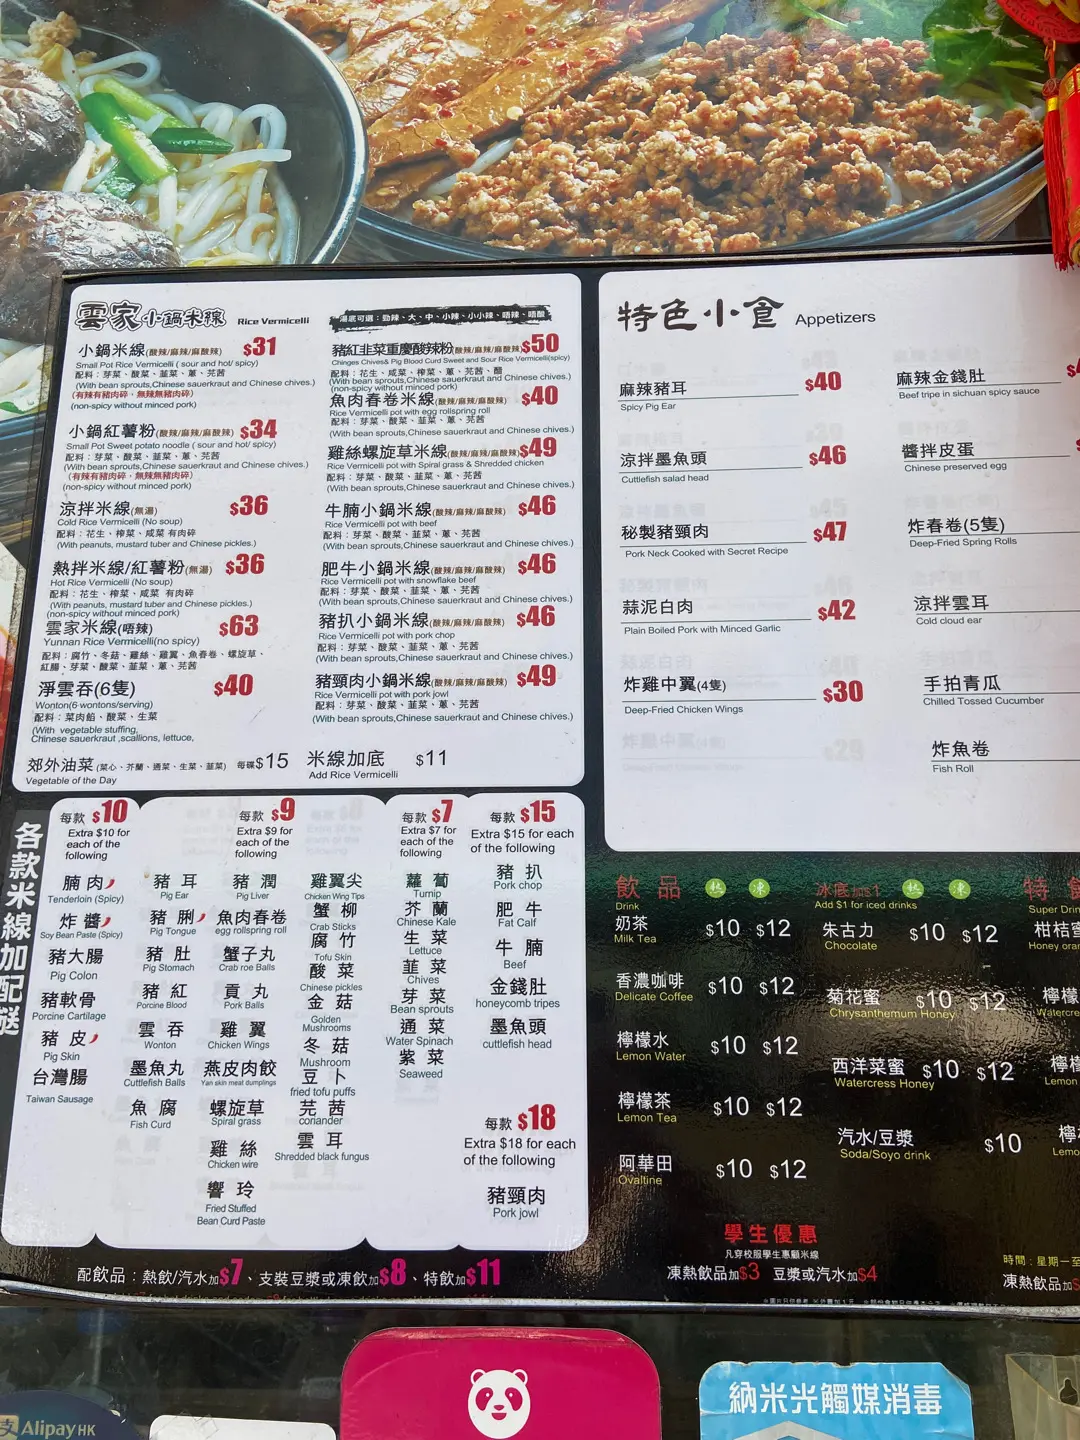 雲家小鍋米線 Rice Vermicelli
湯底可選：勁辣、大、中、小辣、小小辣、唔辣、唔酸
小鍋米線(酸辣/麻辣/麻酸辣) $31
Small Pot Rice Vermicelli ( sour and hot/ spicy)
配料：芽菜、酸菜、韮菜、蔥、芫茜
(With bean sprouts,Chinese sauerkraut and Chinese chives.)
(有辣有豬肉碎、無辣無豬肉碎)
(non-spicy without minced pork)
小鍋紅薯粉(酸辣/麻辣/麻酸辣) $34
Small Pot Sweet potato noodle ( sour and hot/ spicy)
配料：芽菜、酸菜、韮菜、蔥、芫茜
(With bean sprouts,Chinese sauerkraut and Chinese chives.)
(有辣有豬肉碎、無辣無豬肉碎)
(non-spicy without minced pork)
涼拌米線(無湯) $36
Cold Rice Vermicelli (No soup)
配料：花生、榨菜、咸菜 有肉碎
(With peanuts, mustard tuber and Chinese pickles.)
熱拌米線/紅薯粉(無湯) $36
Hot Rice Vermicelli (No soup)
配料：花生、榨菜、咸菜 有肉碎
(With peanuts, mustard tuber and Chinese pickles.)
(non-spicy without minced pork)
雲家米線(唔辣) $63
Yunnan Rice Vermicelli(no spicy)
配料：腐竹、冬菇、雞絲、雞翼、魚春卷、螺旋草、
紅腸、芽菜、酸菜、韮菜、蔥、芫茜
淨雲吞(6隻) $40
Wonton(6 wontons/serving)
配料：菜肉餡、酸菜、生菜
(With vegetable stuffing,
Chinese sauerkraut ,scallions, lettuce,
郊外油菜(菜心、芥蘭、通菜、生菜、韮菜) 每碟$15
Vegetable of the Day
豬紅韭菜重慶酸辣粉(酸辣/麻辣/麻酸辣) $50
Chinges Chives& Pig Blood Curd Sweet and Sour Rice Vermicelli(spicy)
配料：花生、咸菜、榨菜、蔥、芫茜、醋
(With bean sprouts,Chinese sauerkraut and Chinese chives.)
(non-spicy without minced pork)
魚肉春卷米線(酸辣/麻辣/麻酸辣) $40
Rice Vermicelli pot with egg rollspring roll
配料：芽菜、酸菜、韮菜、蔥、芫茜
(With bean sprouts,Chinese sauerkraut and Chinese chives.)
雞絲螺旋草米線(酸辣/麻辣/麻酸辣) $49
Rice Vermicelli pot with Spiral grass & Shredded chicken
配料：芽菜、酸菜、韮菜、蔥、芫茜
(With bean sprouts,Chinese sauerkraut and Chinese chives.)
牛腩小鍋米線(酸辣/麻辣/麻酸辣) $46
Rice Vermicelli pot with beef
配料：芽菜、酸菜、韮菜、蔥、芫茜
(With bean sprouts,Chinese sauerkraut and Chinese chives.)
肥牛小鍋米線(酸辣/麻辣/麻酸辣) $46
Rice Vermicelli pot with snowflake beef
配料：芽菜、酸菜、韮菜、蔥、芫茜
(With bean sprouts,Chinese sauerkraut and Chinese chives.)
豬扒小鍋米線(酸辣/麻辣/麻酸辣) $46
Rice Vermicelli pot with pork chop
配料：芽菜、酸菜、韮菜、蔥、芫茜
(With bean sprouts,Chinese sauerkraut and Chinese chives.)
豬頸肉小鍋米線(酸辣/麻辣/麻酸辣) $49
Rice Vermicelli pot with pork jowl
配料：芽菜、酸菜、韮菜、蔥、芫茜
(With bean sprouts,Chinese sauerkraut and Chinese chives.)
米線加底 $11
Add Rice Vermicelli
特色小食 Appetizers
麻辣豬耳 $40
Spicy Pig Ear
涼拌墨魚頭 $46
Cuttlefish salad head
秘製豬頸肉 $47
Pork Neck Cooked with Secret Recipe
蒜泥白肉 $42
Plain Boiled Pork with Minced Garlic
炸雞中翼(4隻) $30
Deep-Fried Chicken Wings
麻辣金錢肚
Beef tripe in sichuan spicy sauce
醬拌皮蛋
Chinese preserved egg
炸春卷(5隻)
Deep-Fried Spring Rolls
涼拌雲耳
Cold cloud ear
手拍青瓜
Chilled Tossed Cucumber
炸魚卷
Fish Roll
各款米線加配餸
每款 $10
Extra $10 for
each of the
following
腩肉
Tenderloin (Spicy)
炸醬
Soy Bean Paste (Spicy)
豬大腸
Pig Colon
豬軟骨
Porcine Cartilage
豬皮
Pig Skin
台灣腸
Taiwan Sausage
每款 $9
Extra $9 for
each of the
following
豬耳
Pig Ear
豬脷
Pig Tongue
豬肚
Pig Stomach
豬紅
Porcine Blood
雲吞
Wonton
墨魚丸
Cuttlefish Balls
魚腐
Fish Curd
豬潤
Pig Liver
魚肉春卷
egg rollspring roll
蟹子丸
Crab roe Balls
貢丸
Pork Balls
雞翼
Chicken Wings
燕皮肉餃
Yan skin meat dumplings
螺旋草
Spiral grass
雞絲
Chicken wire
響玲
Fried Stuffed
Bean Curd Paste
雞翼尖
Chicken Wing Tips
蟹柳
Crab Sticks
腐竹
Tofu Skin
酸菜
Chinese pickles
金菇
Golden
Mushrooms
冬菇
Mushroom
豆卜
fried tofu puffs
芫茜
coriander
雲耳
Shredded black fungus
每款 $7
Extra $7 for
each of the
following
蘿蔔
Turnip
芥蘭
Chinese Kale
生菜
Lettuce
韮菜
Chives
芽菜
Bean sprouts
通菜
Water Spinach
紫菜
Seaweed
每款 $15
Extra $15 for each
of the following
豬扒
Pork chop
肥牛
Fat Calf
牛腩
Beef
金錢肚
honeycomb tripes
墨魚頭
cuttlefish head
每款 $18
Extra $18 for each
of the following
豬頸肉
Pork jowl
配飲品：熱飲/汽水加$7、支裝豆漿或凍飲加$8、特飲加$11
飲品 熱 凍
Drink
奶茶 $10 $12
Milk Tea
香濃咖啡 $10 $12
Delicate Coffee
檸檬水 $10 $12
Lemon Water
檸檬茶 $10 $12
Lemon Tea
阿華田 $10 $12
Ovaltine
冰底加$1 熱 凍
Add $1 for iced drinks
朱古力 $10 $12
Chocolate
菊花蜜 $10 $12
Chrysanthemum Honey
西洋菜蜜 $10 $12
Watercress Honey
汽水/豆漿 $10
Soda/Soyo drink
特飲
Super Drin
柑桔蜜
Honey oran
檸檬
Watercre
檸檬
Lemon
檸
Lemo
學生優惠
凡穿校服學生惠顧米線
凍熱飲品加$3 豆漿或汽水加$4
時間：星期一至
凍熱飲加$
支 Alipay HK
納米光觸媒消毒